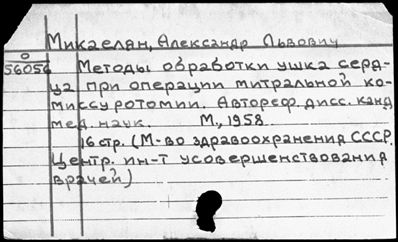 Микаелян, Александр Львович
о
56056
Методы обработки ушка серд-
ца при операции митральной ко-
миссуротомии. Автореф. дисс. канд
мед. наук. М., 1958.
16 стр. (М-во здравоохранения СССР.
Центр. ин-т усовершенствования
врачей)